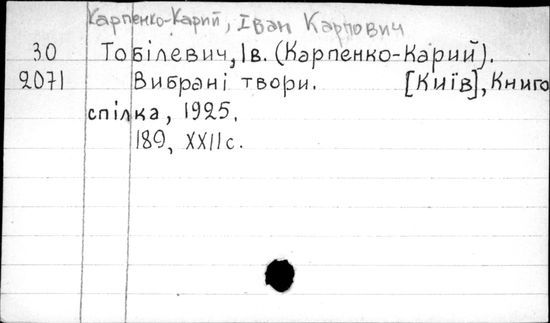 Карпенко-Карий, Іван Карпович
30 Тобілевич, Ів. (Карпенко-Карий).
2071 Вибрані твори. [Київ], Книго
спілка, 1925.
189, XXII с.